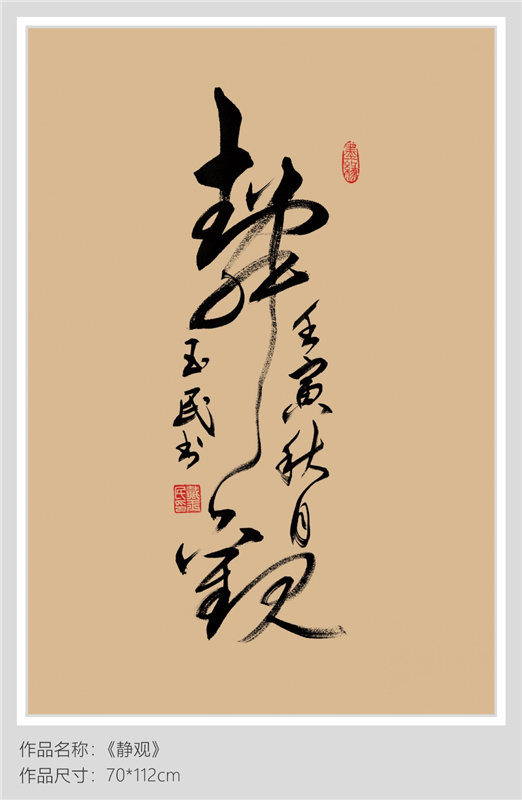 静觀
壬寅秋月
玉民书
作品名称：《静观》
作品尺寸：70*112cm